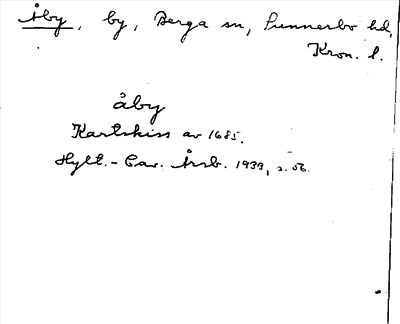 Åby, by, Berga sn, Sunnerbo hd,
Kron. l.
åby
Kartskiss av 1685.
Hylt.-Cav. Årsb. 1939, s. 56.